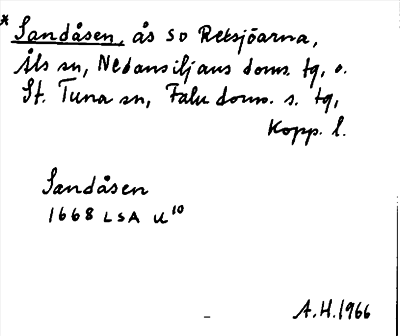 * Sandåsen, ås so Retsjöarna,
Åls sn, Nedansiljans doms. tg, o.
St. Tuna sn, Falu doms. s. tg,
Kopp. l.
Sandåsen
1668 LSA U¹⁰
A.H. 1966